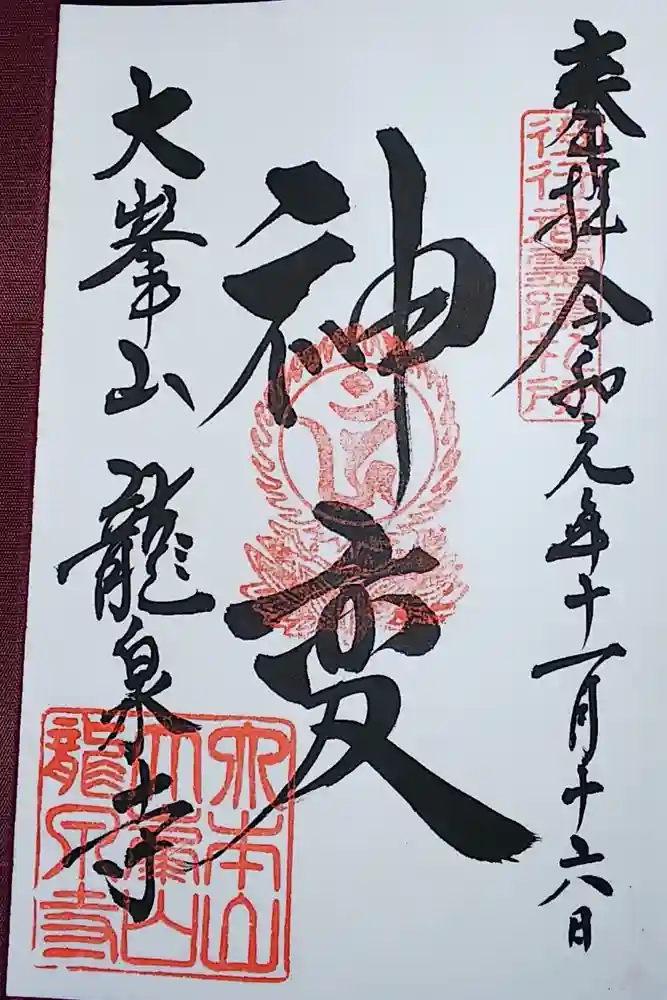 奉拝 令和元年十一月十六日
神変
大峯山 龍泉寺
大本山
大峯山
龍泉寺